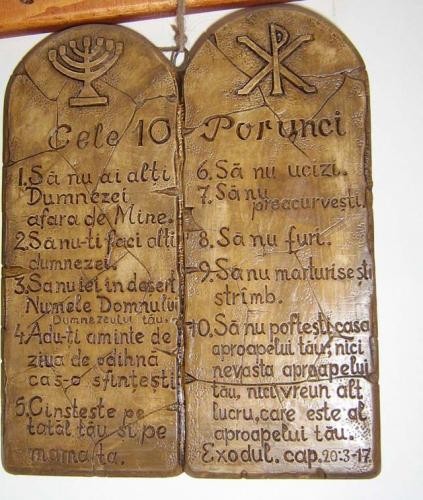 Cele 10 Porunci
1. Să nu ai alți
Dumnezei
afara de Mine.
2. Să nu-ti faci alti
dumnezei.
3. Sa nu iei in desert
Numele Domnului
Dumnezeului tău.
4. Adu-ti aminte de
ziua de odihnă
ca s-o sfințești
5. Cinsteste pe
tatăl tău si pe
mama ta.
6. Să nu ucizi.
7. Să nu
preacurvești.
8. Să nu furi.
9. Sa nu marturisești
strîmb.
10. Să nu poftești casa
aproapelui tău, nici
nevasta aproapelui
tău, nici vreun alt
lucru, care este al
aproapelui tău.
Exodul. cap. 20:3-17